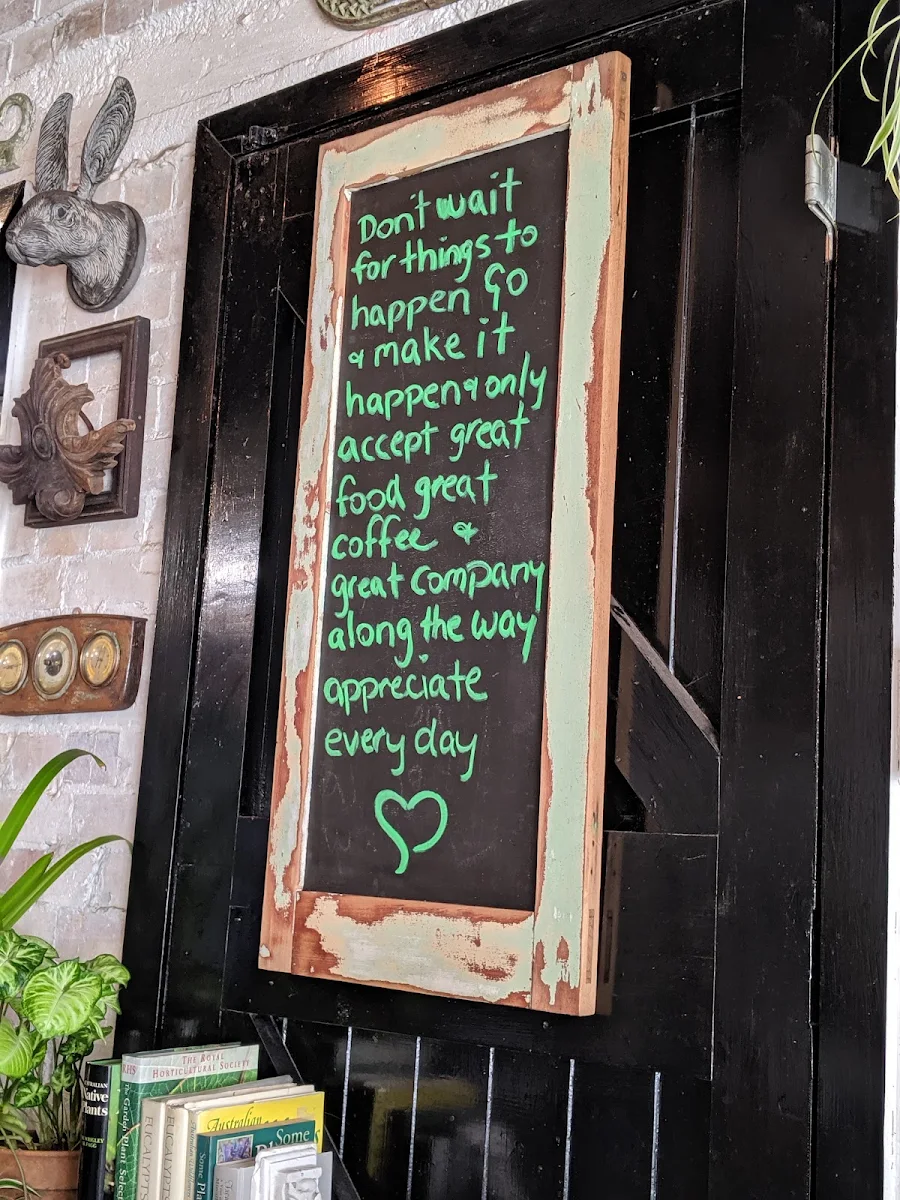 Don't wait
for things to
happen Go
& make it
happen & only
accept great
food great
coffee &
great company
along the way
appreciate
every day
Native
Plants
RHS
THE ROYAL
HORTICULTURAL SOCIETY
The Garden Plant Selec
EUCALYPTS
EUCALYPTS
Australian
Some
Some